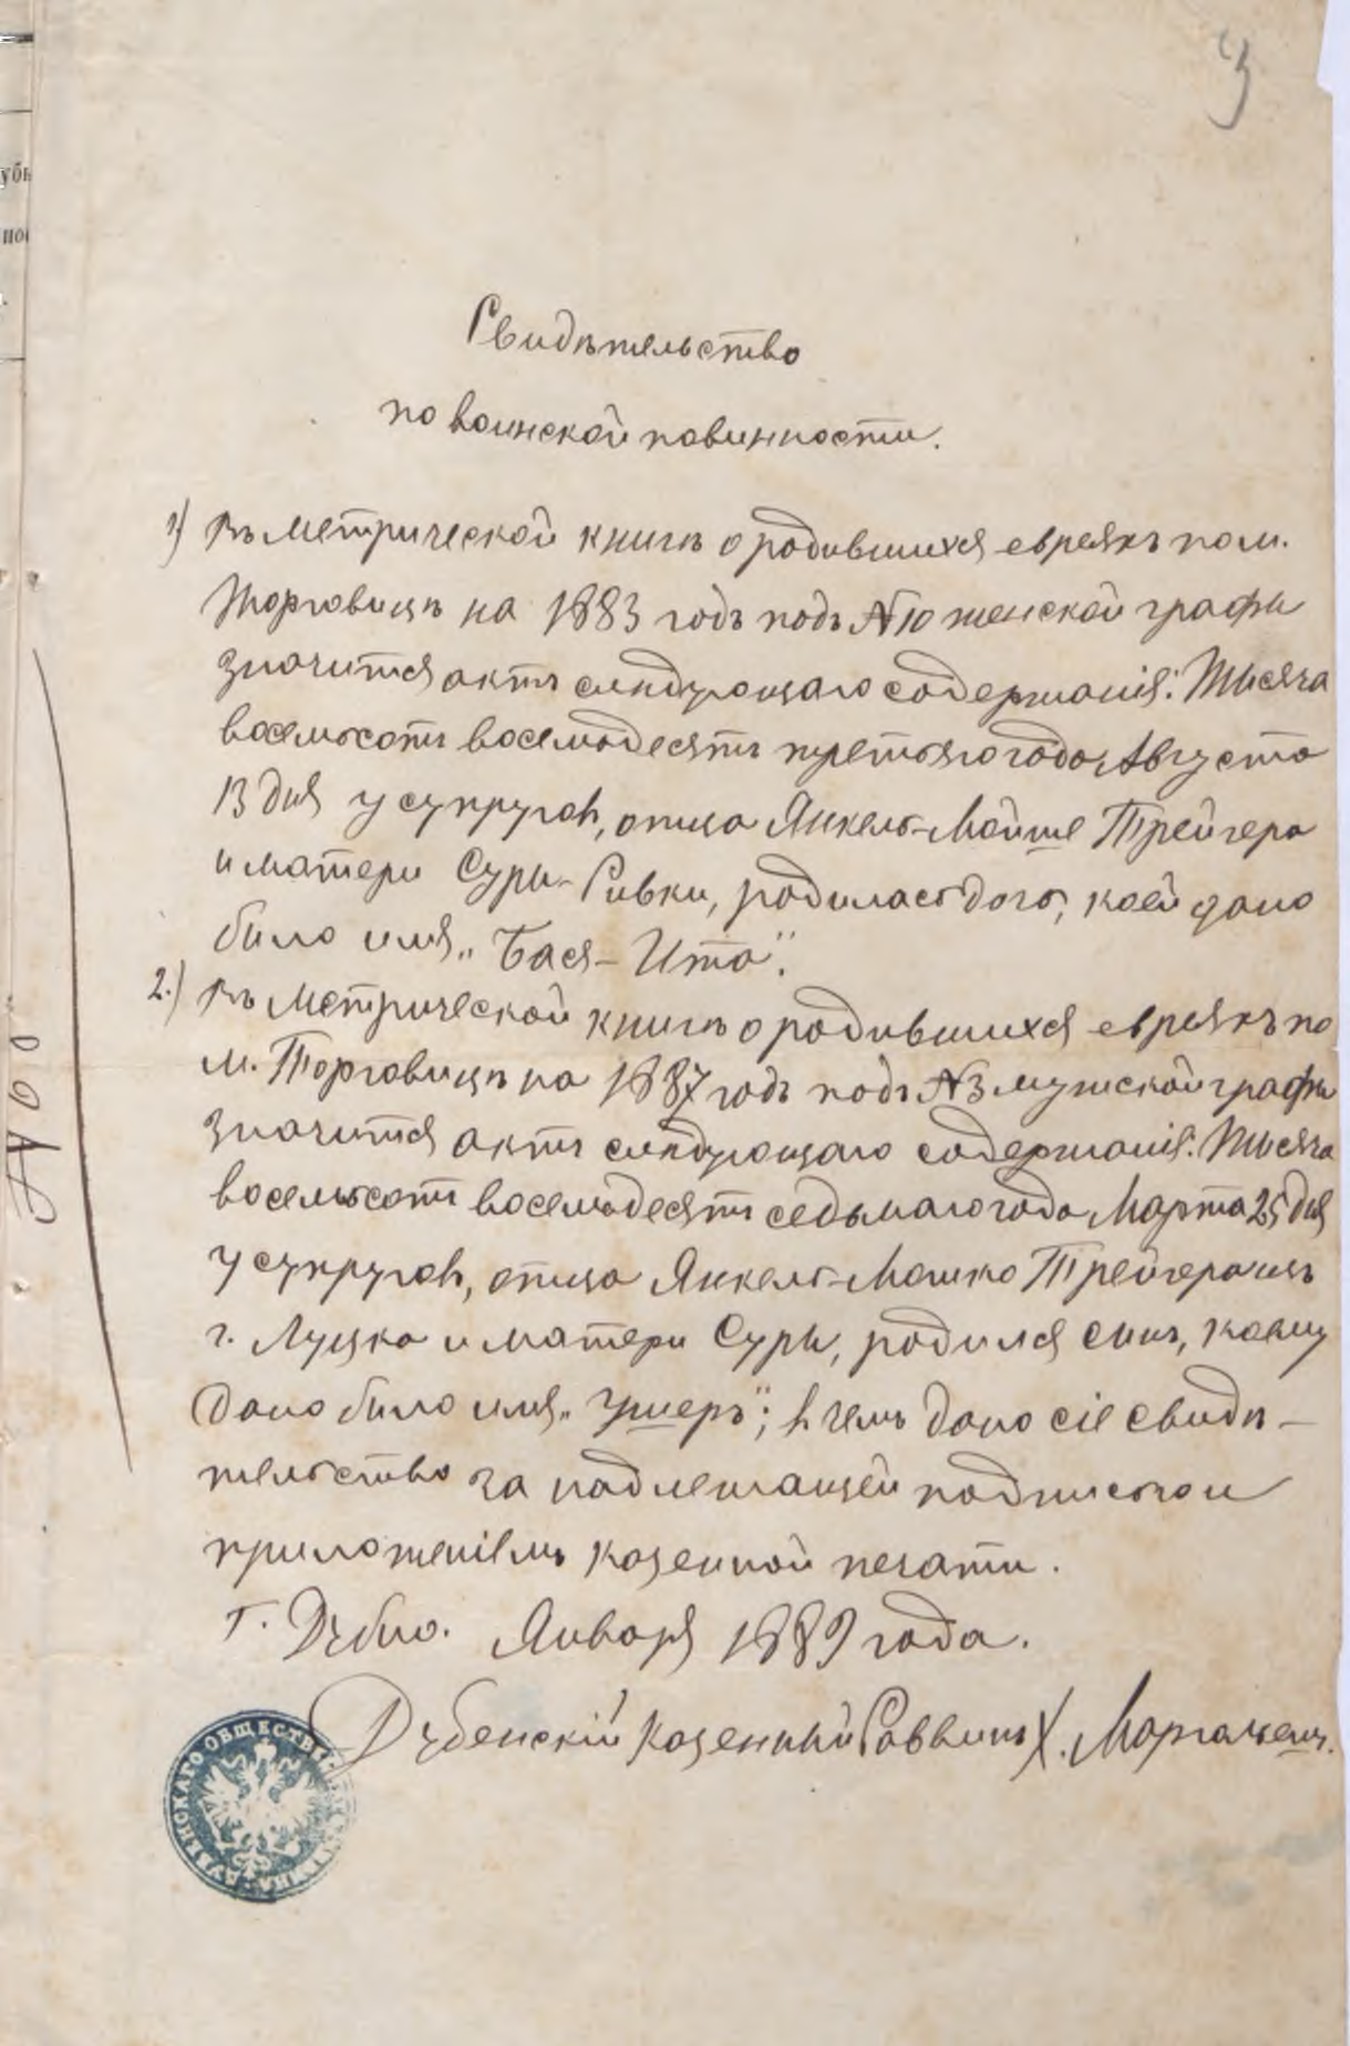 3
Свидѣтельство
по воинской повинности.
1) Въ метрической книгѣ о родившихся евреяхъ по м.
Торговицѣ на 1883 годъ подъ №10 женской графы
значится актъ слѣдующаго содержанія: Тысяча
восемьсотъ восемьдесятъ третьяго года Августа
13 дня у супруговъ, отца Янкель-Мойше Трейгера
и матери Суры-Ривки, родилась дочь, коей дано
было имя „Бася-Ита".
2.) Въ метрической книгѣ о родившихся евреяхъ по
м. Торговицѣ на 1887 годъ подъ №3 мужской графы
значится актъ слѣдующаго содержанія: Тысяча
восемьсотъ восемьдесятъ седьмаго года Марта 25 дня
у супруговъ, отца Янкель-Мошко Трейгера изъ
г. Луцка и матери Суры, родился сынъ, коему
дано было имя „Ушеръ"; въ чемъ дано сіе свидѣ-
тельство за надлежащей подписью и
приложеніемъ казенной печати.
Г. Дубно. Января 1889 года.
Дубенскій Казенный Раввинъ Х. Маргалешъ.
ДУБЕНСКАГО ОБЩЕСТВЕН. РАВВИНА